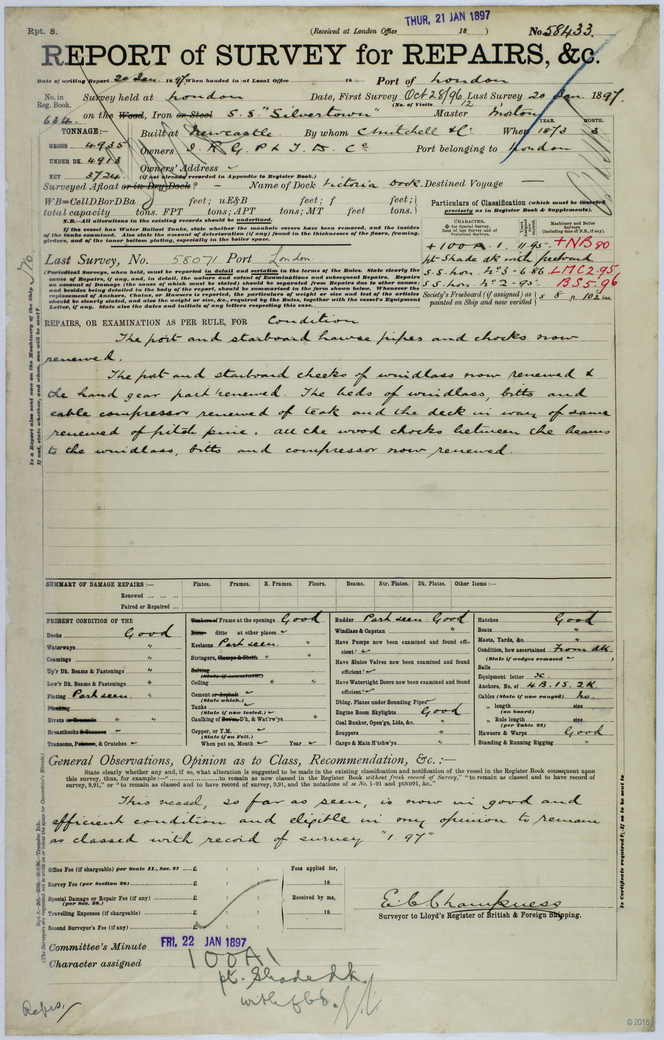 THUR, 21 JAN 1897
Rpt. 8.
(Received at London Office 18 )
No. 58433.
REPORT of SURVEY for REPAIRS, &c.
Date of writing Report 20 Jan. 1897 When handed in at Local Office 18 Port of London
No. in Reg. Book. Survey held at London Date, First Survey Oct 28/96 Last Survey 20 Jan. 1897.
(No. of Visits 12
624. on the Wood, Iron or Steel S.S. "Silvertown" Master
TONNAGE:—
GROSS 4935
UNDER DK. 4913
NET 3724
Built at Newcastle. By whom C. Mitchell & Co. When 1873 3
YEAR. MONTH.
Owners I. R. G. P. & T. W. Co. Port belonging to London
Owners' Address
(if not already recorded in Appendix to Register Book.)
Surveyed Afloat or in Dry Dock? — Name of Dock Victoria Dock. Destined Voyage —
WB=CellDBorDBa feet; uE&B feet; f feet;
total capacity tons. FPT tons; APT tons; MT feet tons.
N.B.—All alterations in the existing records should be underlined.
If the vessel has Water Ballast Tanks, state whether the manhole covers have been removed, and the insides
of the tanks examined. Also state the amount of deterioration (if any) found in the thicknesses of the floors, framing,
girders, and of the inner bottom plating, especially in the boiler space.
Particulars of Classification (which must be inserted
precisely as in Register Book & Supplements).
CHARACTER.
+100A.1. 11.95. +NB 80
pt Shade dk with freeboard
S.S. Lon. No. 3-6.86 LMC 2.95
S.S. Lon. No. 2-95. BS 5.96
Society's Freeboard (if assigned) as painted on Ship and now verified 8 ft. 10½ ins.
Last Survey, No. 58071 Port London
(Periodical Surveys, when held, must be reported in detail and seriatim in the terms of the Rules. State clearly the
cause of Repairs, if any, and, in detail, the nature and extent of Examinations and subsequent Repairs. Repairs
on account of Damage (the cause of which must be stated) should be separated from Repairs due to other causes;
and besides being detailed in the body of the report, should be summarized in the form shewn below. Whenever the
replacement of Anchors, Chains, or Hawsers is reported, the particulars of weight or size and test of the articles
should be clearly stated, and also the weight or size, &c., required by the Rules, together with the vessel's Equipment
Letter, if any. State also the dates and initials of any letters respecting this case.
REPAIRS, OR EXAMINATION AS PER RULE, FOR Condition
The port and starboard hawse pipes and chocks now
renewed.
The port and starboard cheeks of windlass now renewed &
the hand gear part renewed. The beds of windlass, bitts and
cable compressor renewed of teak and the deck in way of same
renewed of pitch pine. All the wood chocks between the beams
to the windlass, bitts and compressor now renewed.
SUMMARY OF DAMAGE REPAIRS:— Plates. Frames. R. Frames. Floors. Beams. Str. Plates. Dk. Plates. Other Items:—
Renewed ... ...
Faired or Repaired ...
PRESENT CONDITION OF THE
Decks Good
Waterways "
Coamings "
Up'r Dk. Beams & Fastenings "
Low'r Dk. Beams & Fastenings "
Plating Part seen. "
Planking
Rivets or Treenails " "
Breasthooks & Stemson "
Transoms, Pointers, & Crutches
Timbers or Frame at the openings Good
Ditto ditto at other places
Keelsons Part seen. "
Stringers, Clamps & Shelfs "
Salting
(State if examined)
Ceiling "
Cement or Asphalt
(State which.)
Tanks
(State if now tested.)
Caulking of Bot'm, D'k, & Wat'rw'ys "
Copper, or Y.M.
(State if on Felt.)
When put on, Month Year
Rudder Part seen Good
Windlass & Capstan "
Have Pumps now been examined and found efficient?
Have Sluice Valves now been examined and found efficient?
Have Watertight Doors now been examined and found efficient?
Dblg. Plates under Sounding Pipes
Engine Room Skylights Good
Coal Bunker, Open'gs, Lids, &c. "
Scuppers "
Cargo & Main H'tchw'ys "
Hatches Good
Boats "
Masts, Yards, &c. "
Condition, how ascertained From dk
(State if wedges removed
Sails
Equipment letter
Anchors, No. of 4B. 1S. 2K.
Cables (State if now ranged) No.
" length size
(on board)
" Rule length size
(per Table 22)
Hawsers & Warps Good
Standing & Running Rigging "
General Observations, Opinion as to Class, Recommendation, &c.:—
State clearly whether any, and if so, what alteration is suggested to be made in the existing classification and notification of the vessel in the Register Book consequent upon
This vessel, so far as seen, is now in good and
efficient condition and eligible in my opinion to remain
as classed with record of survey "1.97"
Office Fee (if chargeable) per Scale II., Sec. 27 ... £ : :
Survey Fee (per Section 28) ... £ : :
Special Damage or Repair Fee (if any) (per Sec. 28.) ... £ : :
Travelling Expenses (if chargeable) ... £ : :
Second Surveyor's Fee (if any) ... £ : :
Fees applied for, 18
Received by me, 18
E. C. Champness
Surveyor to Lloyd's Register of British & Foreign Shipping.
Committee's Minute FRI, 22 JAN 1897
Character assigned 100A1
pt. Shade dk.
with fbd.
© 2018